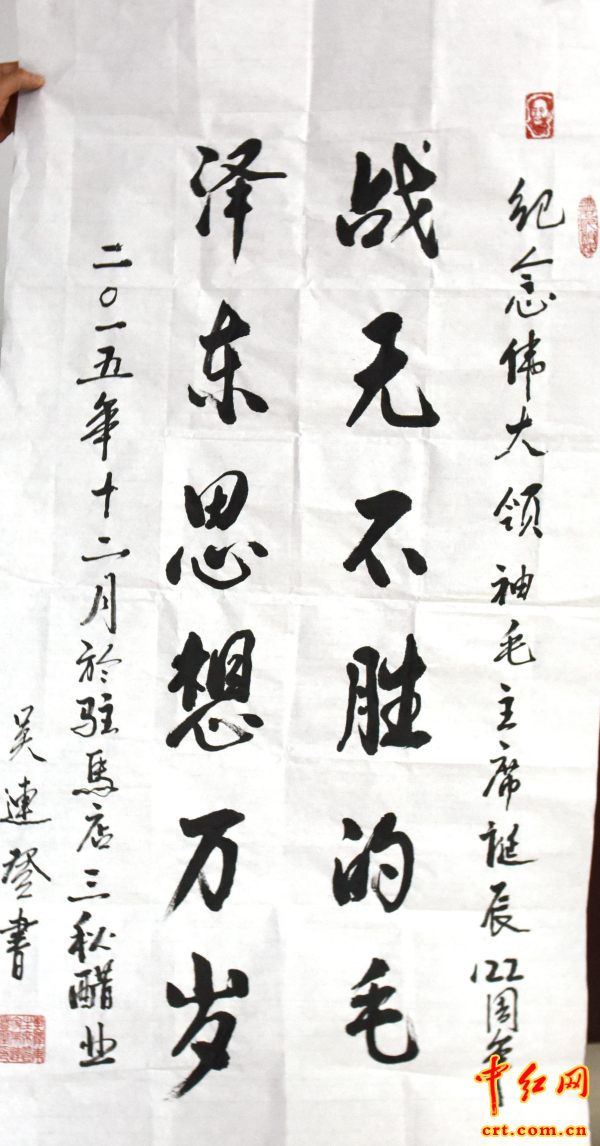 纪念伟大领袖毛主席诞辰122周年
战无不胜的毛
泽东思想万岁
二〇一五年十二月於驻馬店三秋醋业
吴連登書
中红网
crt.com.cn